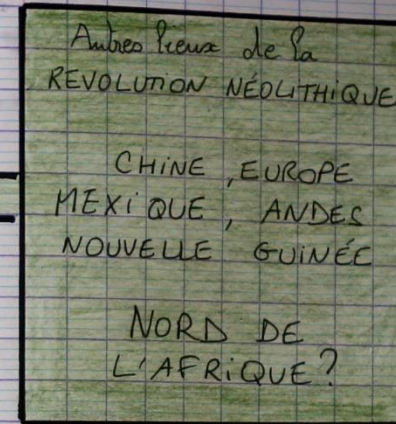 Autres lieux de la
REVOLUTION NÉOLITHIQUE
CHINE, EUROPE
MEXIQUE, ANDES
NOUVELLE GUINÉE
NORD DE
L'AFRIQUE?